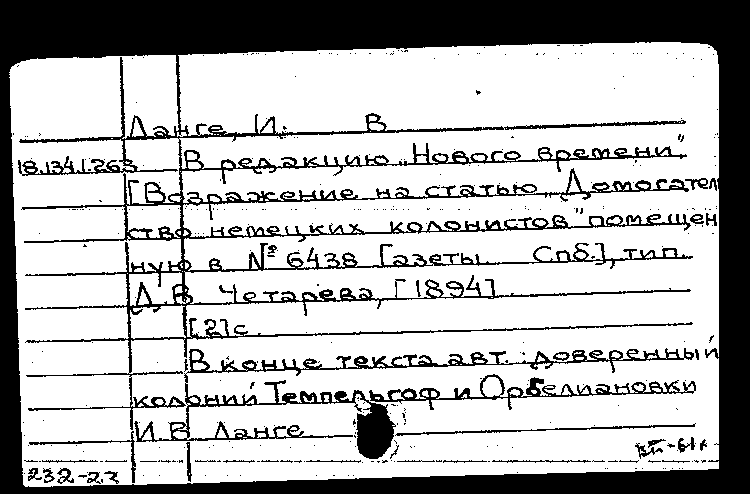 Ланге, И. В
18.134.1.263 В редакцию „Нового времени".
[Возражение на статью „Домогатель
ство немецких колонистов" помещен
ную в № 6438 [азеты Спб.], тип.
Д.В. Четарева, [1894].
[2]с.
В конце текста авт.: доверенный
колоний Темпельгоф и Орбелиановки
И.В Ланге
232-23